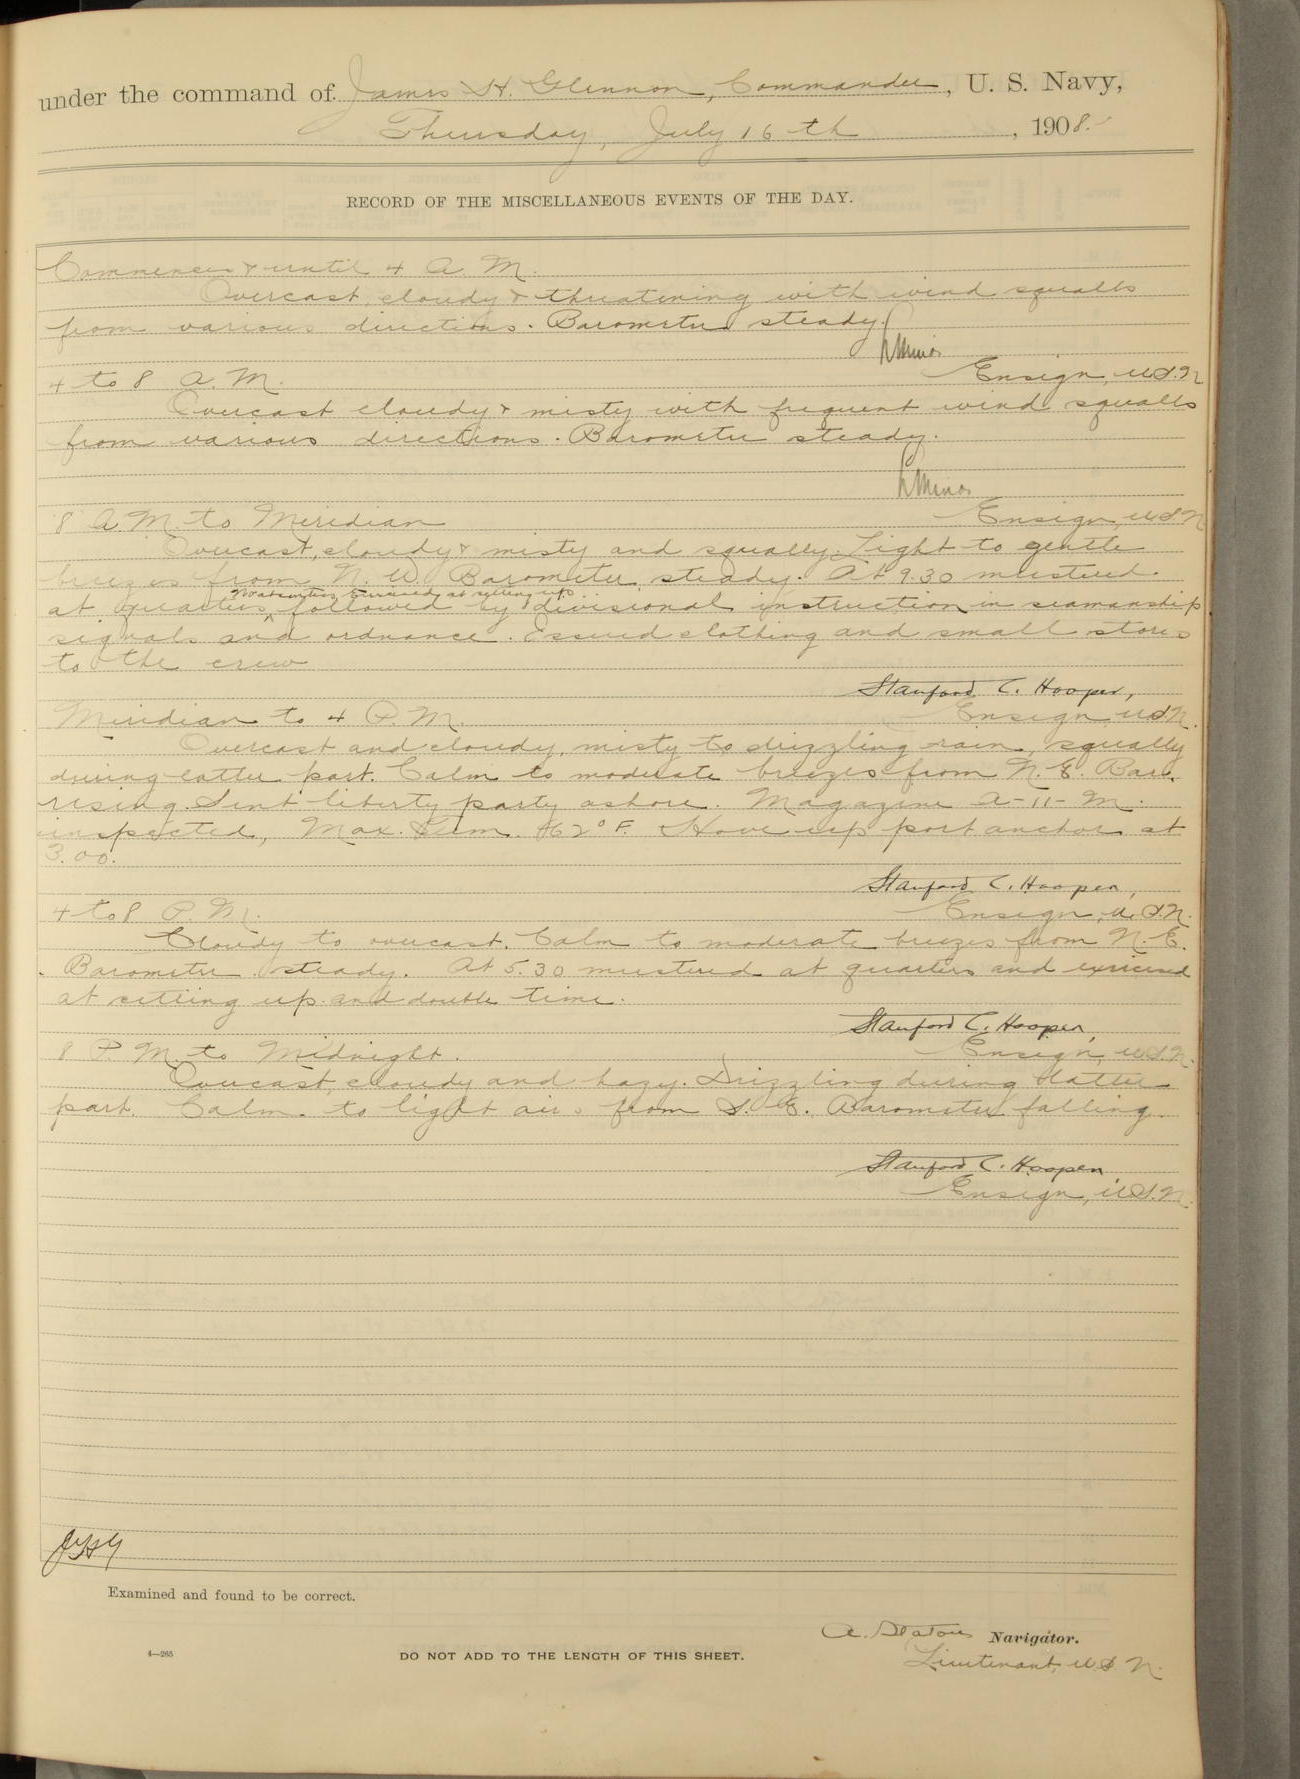 under the command of James H. Glennon, Commander, U. S. Navy,
Thursday, July 16th, 1908.
RECORD OF THE MISCELLANEOUS EVENTS OF THE DAY.
Commences & until 4 A. M.
Overcast, cloudy & threatening with wind squalls
from various directions. Barometer steady.
Ensign, U.S.N
4 to 8 A. M.
Overcast cloudy & misty with frequent wind squalls
from various directions. Barometer steady.
Ensign, U.S.N
8 A.M. to Meridian
Overcast, cloudy & misty and squally. Light to gentle
breezes from N. W. Barometer steady. At 9.30 mustered
No absentees, Exercised at setting up
at quarters, followed by divisional instruction in seamanship
signals and ordnance. Issued clothing and small stores
to the crew
Stanford C. Hooper,
Ensign U.S.N.
Meridian to 4 P. M.
Overcast and cloudy, misty to drizzling rain, squally
during latter part. Calm to moderate breezes from N. E. Bar.
rising. Sent liberty party ashore. Magazine A-11-M.
inspected, Max. Tem. 62° F. Hove up port anchor at
3.00.
Stanford C. Hooper,
Ensign, U.S.N.
4 to 8 P. M.
Cloudy to overcast. Calm to moderate breezes from N. E.
Barometer steady. At 5.30 mustered at quarters and exercised
at setting up and double time.
Stanford C. Hooper,
Ensign, U.S.N.
8 P. M. to Midnight.
Overcast, cloudy and hazy. Drizzling during latter
part. Calm to light airs from S. E. Barometer falling.
Stanford C. Hooper
Ensign, U.S.N.
JHG
Examined and found to be correct.
Navigator.
Lieutenant, U.S.N.
4—265
DO NOT ADD TO THE LENGTH OF THIS SHEET.